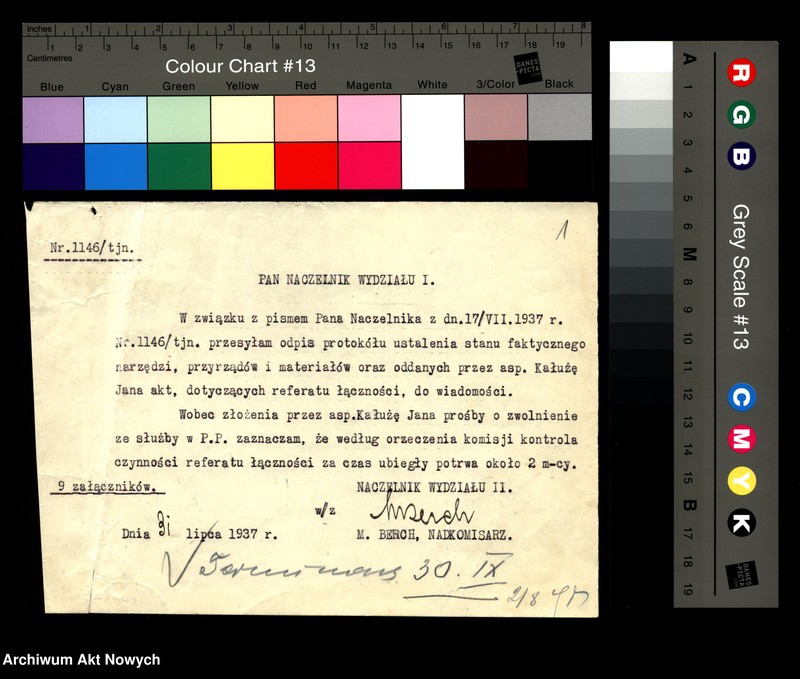 Inches 1 2 3 4 5 6 7 8
Centimetres 1 2 3 4 5 6 7 8 9 10 11 12 13 14 15 16 17 18 19
Colour Chart #13
DANES PICTA
Blue Cyan Green Yellow Red Magenta White 3/Color Black
1
Nr.1146/tjn.
PAN NACZELNIK WYDZIAŁU I.
W związku z pismem Pana Naczelnika z dn.17/VII.1937 r.
Nr.1146/tjn. przesyłam odpis protokółu ustalenia stanu faktycznego
narzędzi, przyrządów i materiałów oraz oddanych przez asp. Kałużę
Jana akt, dotyczących referatu łączności, do wiadomości.
Wobec złożenia przez asp.Kałużę Jana prośby o zwolnienie
ze służby w P.P. zaznaczam, że według orzeczenia komisji kontrola
czynności referatu łączności za czas ubiegły potrwa około 2 m-cy.
9 załączników.
NACZELNIK WYDZIAŁU II.
w/z MBerch
Dnia 31 lipca 1937 r.
M. BERCH, NADKOMISARZ.
30. IX
2/8
A 1 2 3 4 5 6 M 8 9 10 11 12 13 14 15 B 17 18 19
R G B
Grey Scale #13
C M Y K
DANES PICTA
Archiwum Akt Nowych